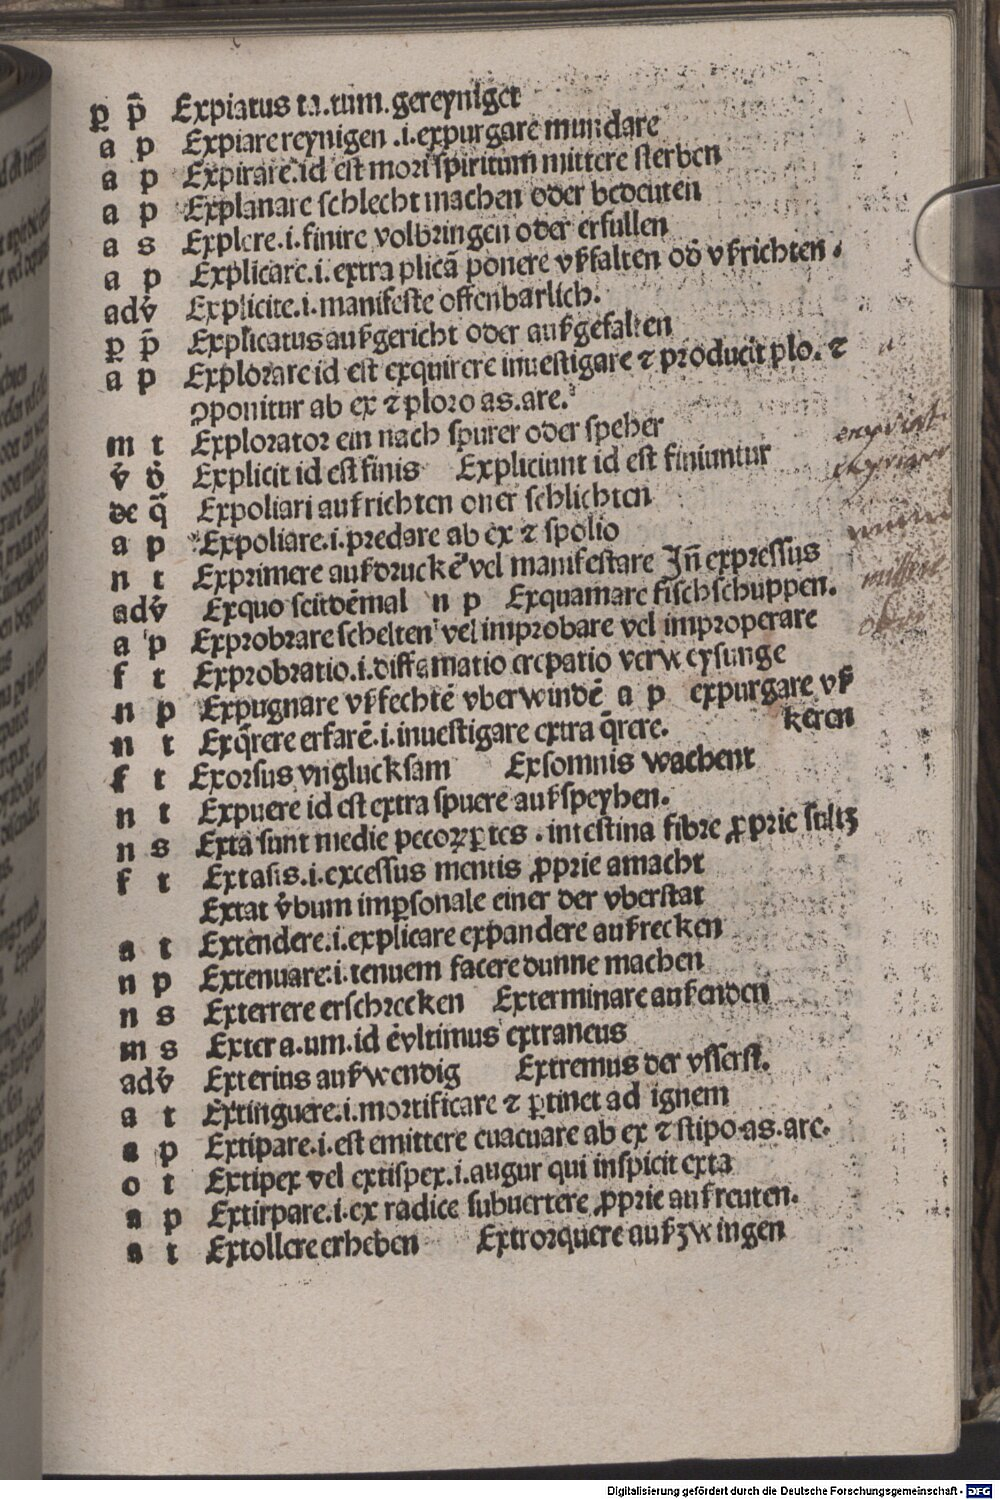 ꝑ p̄ Expiatus ta.tum.gereyniget
a p Expiare reynigen .i.expurgare mundare
a p Expirare.id est mori spiritum mittere sterben
a p Explanare schlecht machen oder bedeuten
a s Explere.i.finire volbringen oder erfullen
a p Explicare.i.extra plicā ponere vßfalten od̄ vßrichten .
adv̄ Explicite.i.manifeste offenbarlich.
ꝑ p̄ Explicatus außgericht oder außgefalten
a p Explorare id est exquirere inuestigare ⁊ producit plo. ⁊
ꝯponitur ab ex ⁊ ploro as.are.
m t Explorator ein nach spurer oder speher
v̄ d̄ Explicit id est finis Expliciunt id est finiuntur
de q̄ Expoliari außrichten oner schlichten
a p Expoliare.i.predare ab ex ⁊ spolio
n t Exprimere außdruckē vel manifestare Jn̄ expressus
adv̄ Exquo seitdēmal n p Exquamare fischschuppen.
a p Exprobrare schelten vel improbare vel improperare
f t Exprobratio.i.diffamatio crepatio verweysunge
n p Expugnare vßfechtē vberwindē a p expurgare vß
n t Exq̄rere erfarē.i.inuestigare extra q̄rere. keren
f t Exorsus vnglucksam Exsomnis wachent
n t Expuere id est extra spuere außspeyhen.
n s Exta sunt medie pecoꝝ ꝑtes . intestina fibre ꝓprie sultz
f t Extasis.i.excessus mentis ꝓprie amacht
Extat v̄bum imꝑsonale einer der vberstat
a t Extendere.i.explicare expandere außrecken
n p Extenuare.i.tenuem facere dunne machen
n s Exterrere erschrecken Exterminare außenden
m s Exter a.um.id ē vltimus extraneus
adv̄ Exterius außwendig Extremus der vsserst.
a t Extinguere.i.mortificare ⁊ ꝑtinet ad ignem
a p Extipare.i.est emittere euacuare ab ex ⁊ stipo as.are.
o t Extipex vel extispex.i.augur qui inspicit exta
a p Extirpare.i.ex radice subuertere ꝓprie außreuten.
a t Extollere erheben Extrorquere außzwingen
mittere
Digitalisierung gefördert durch die Deutsche Forschungsgemeinschaft - DFG